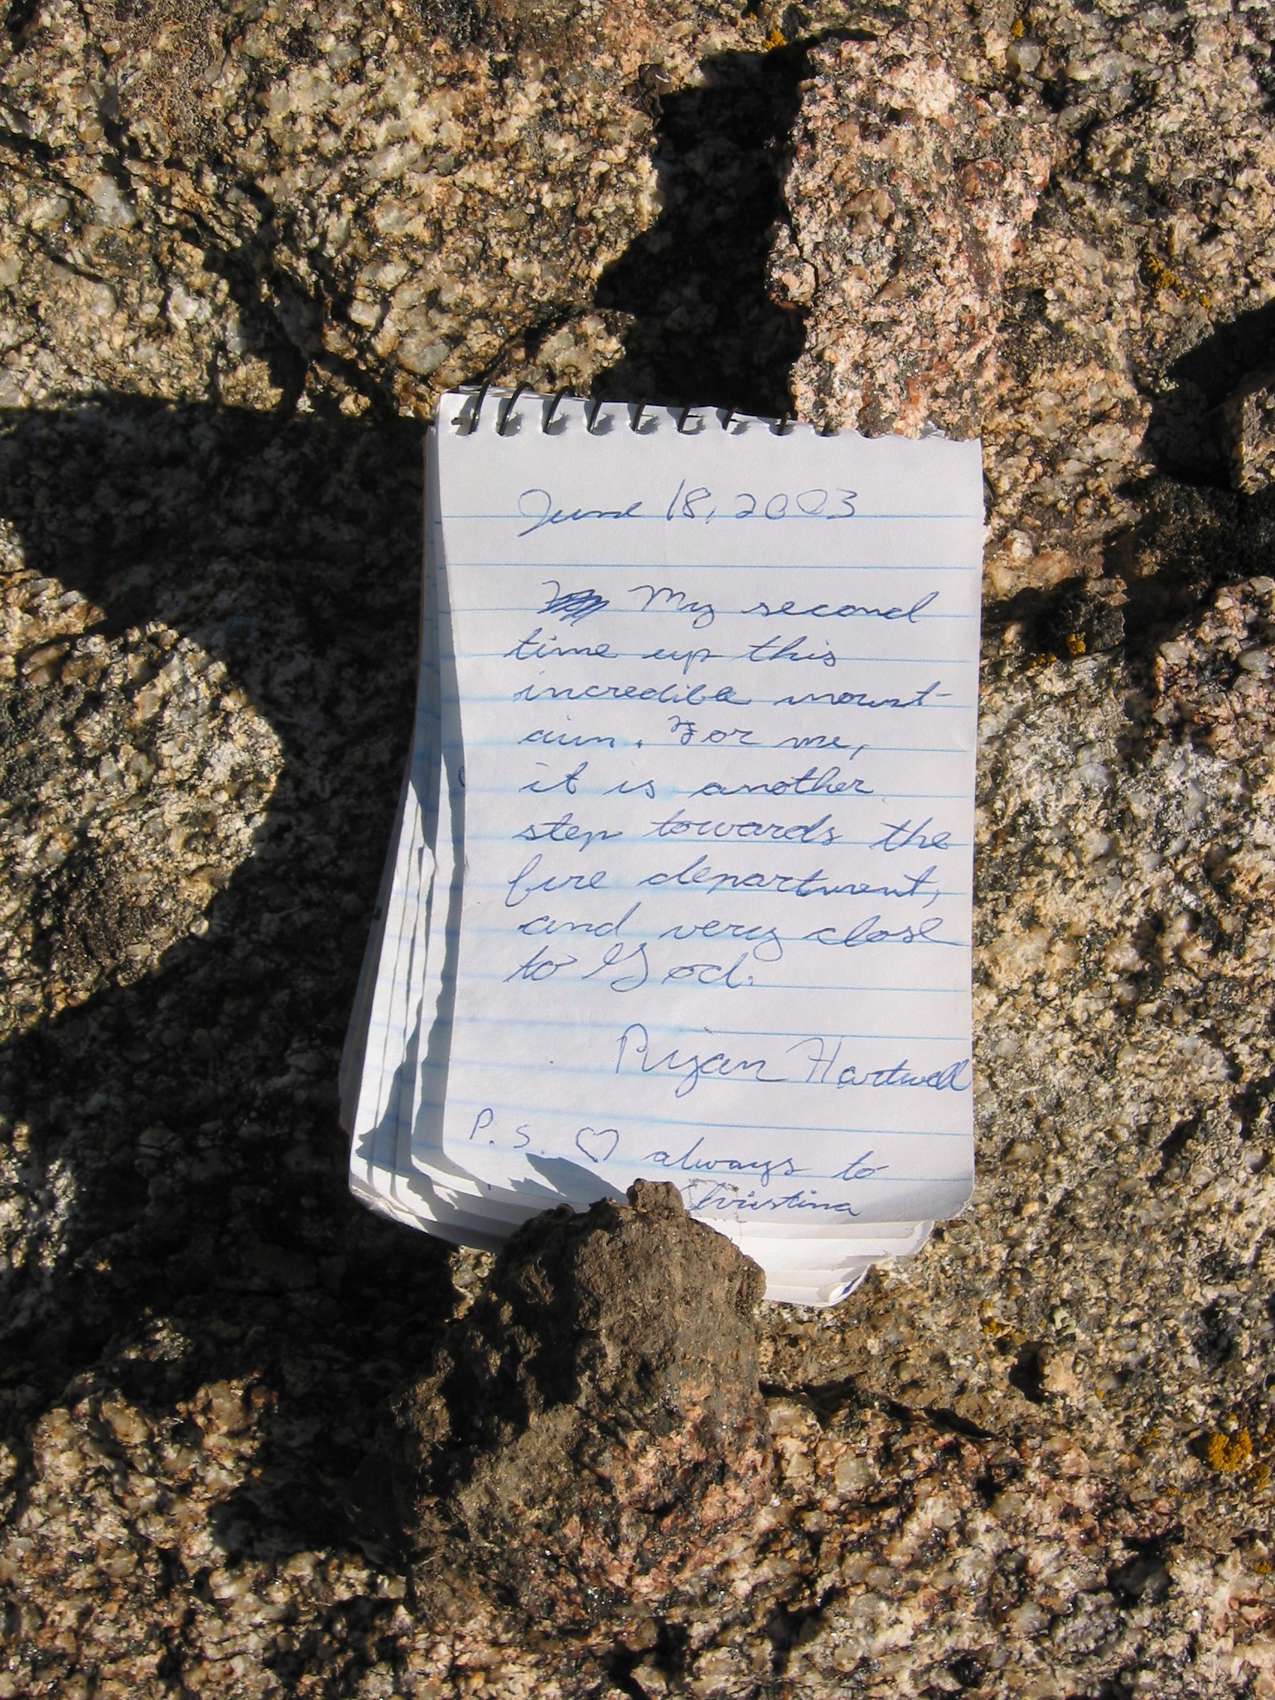 June 18, 2003
My second
time up this
incredible mount-
ain. For me,
it is another
step towards the
fire department,
and very close
to God.
Ryan Hartwell
P.S. ♡ always to
Christina